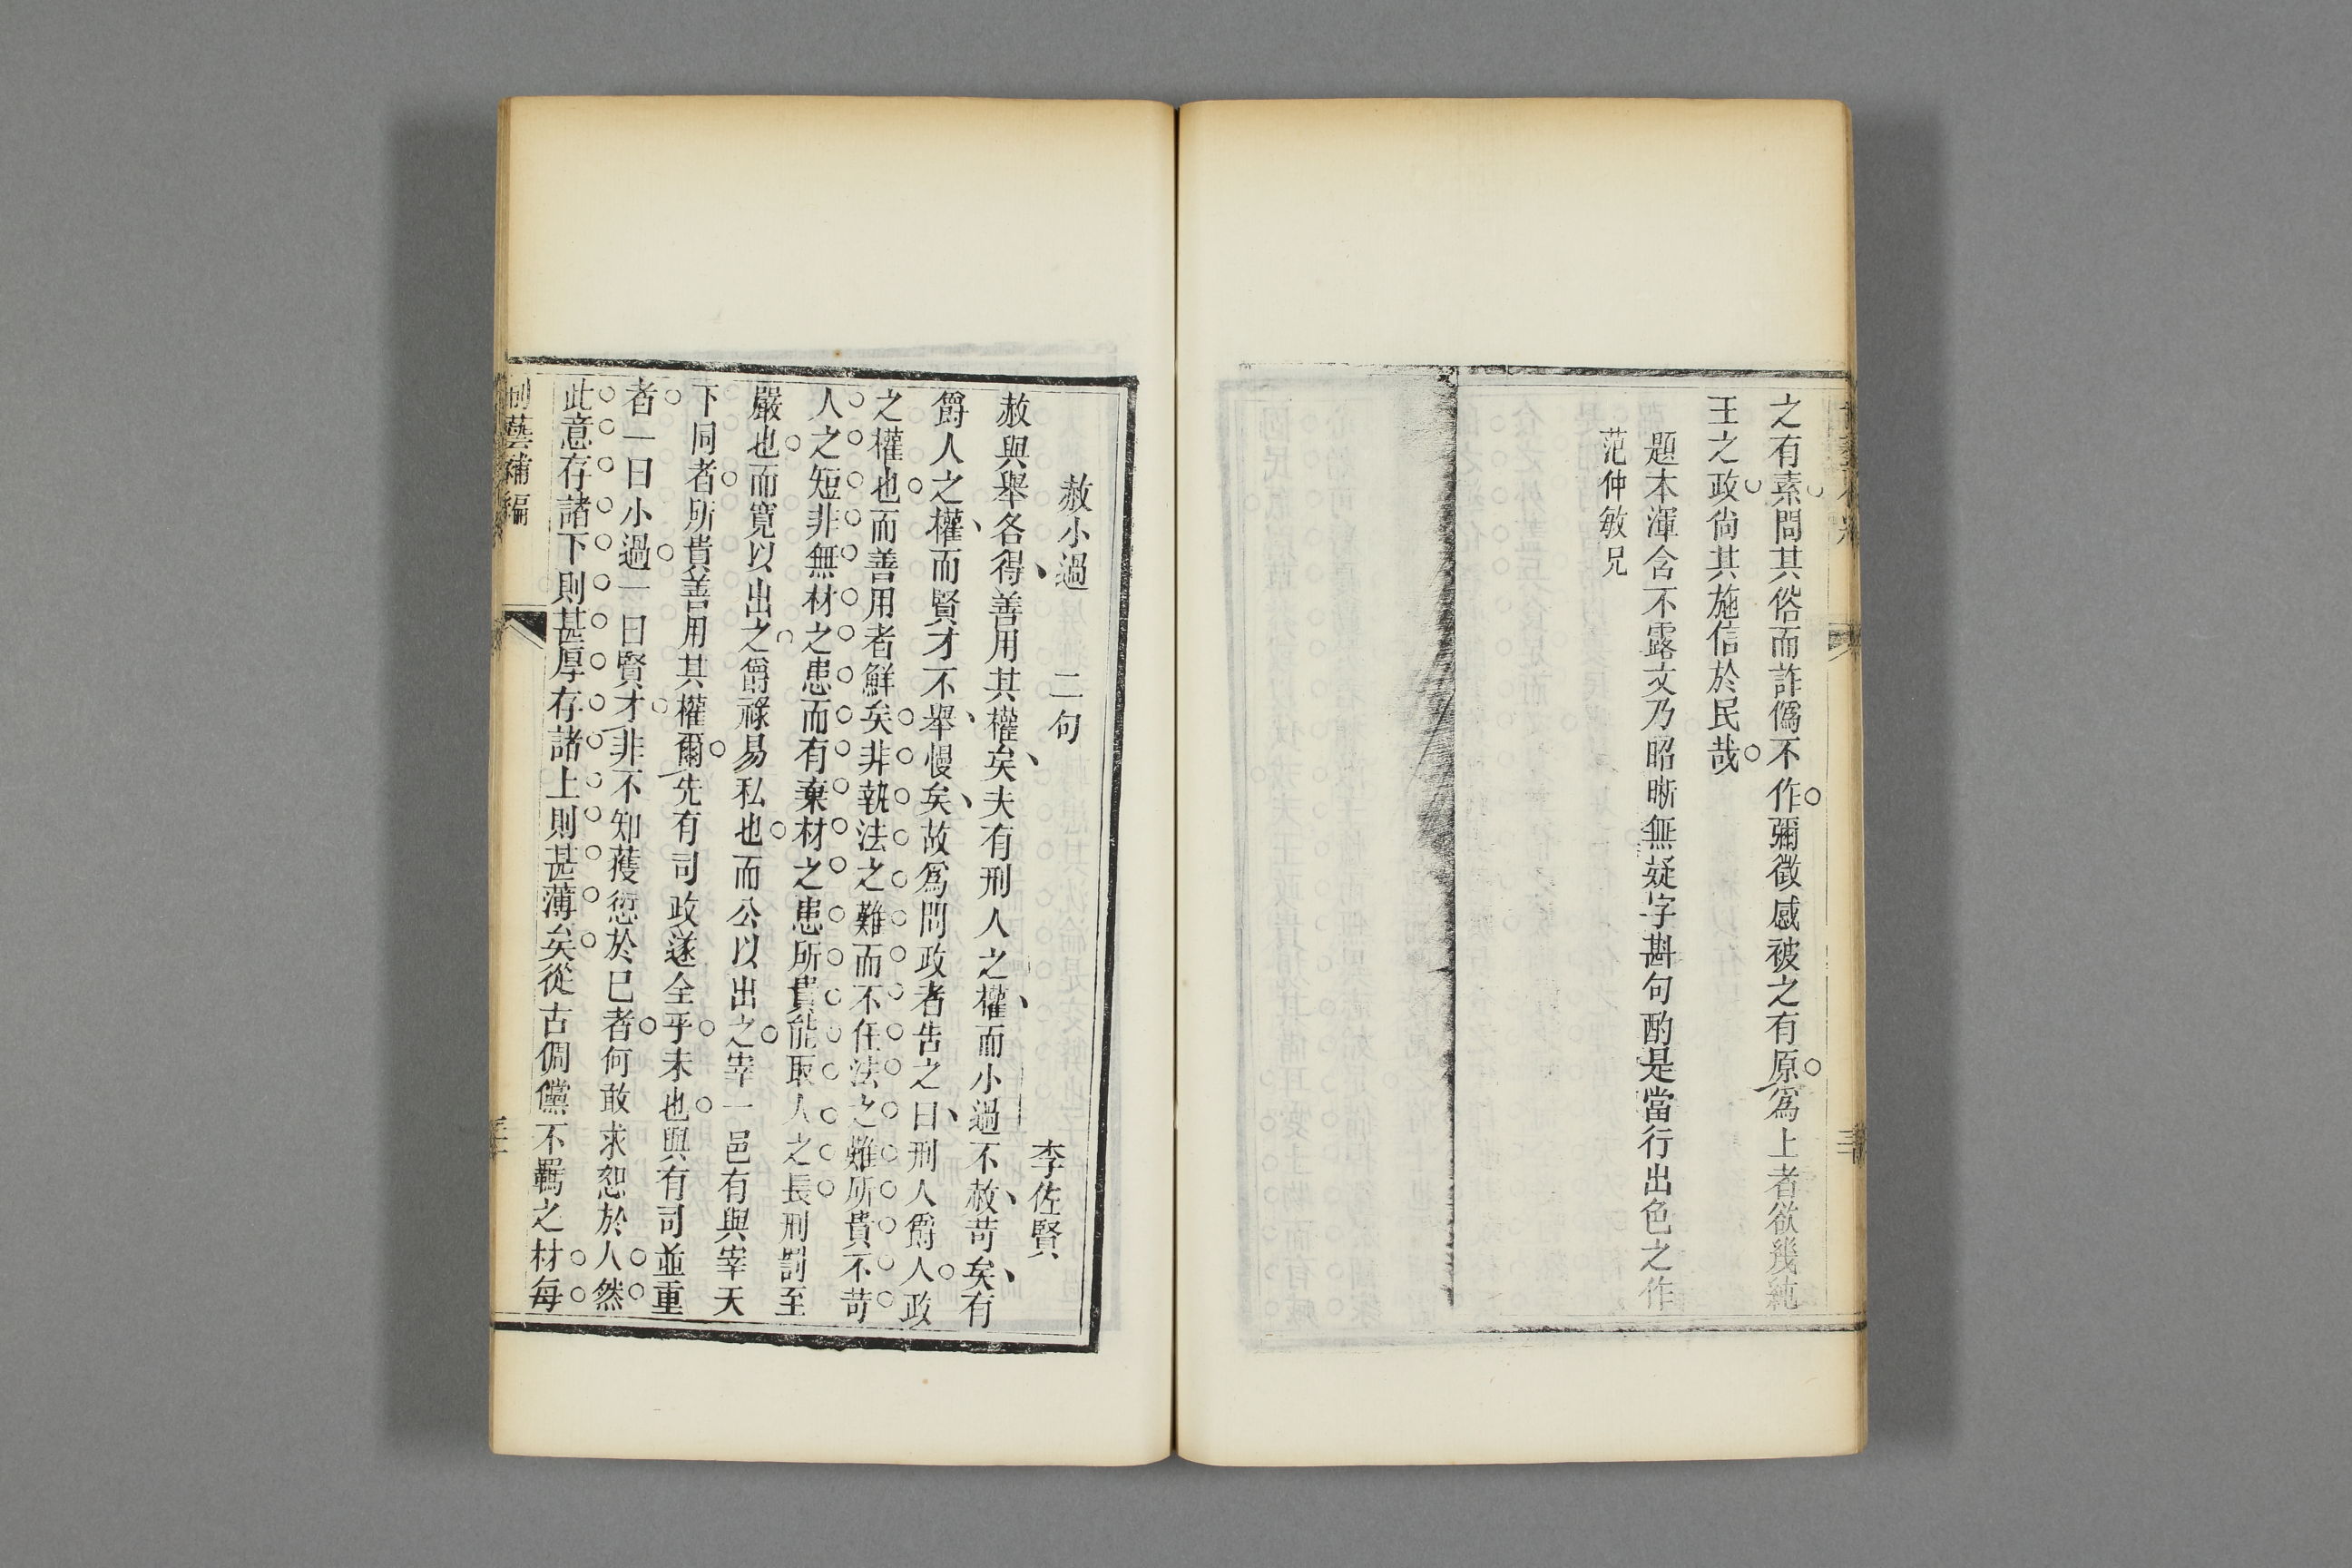 之有素問其俗而詐僞不作彌徵感被之有原爲上者欲幾純
王之政尙其施信於民哉
題本渾含不露文乃昭晰無疑字斟句酌是當行出色之作
范仲敏兄
赦小過　二句
李佐賢
赦與舉各得善用其權矣夫有刑人之權而小過不赦苛矣有
爵人之權而賢才不舉慢矣故爲問政者告之曰刑人爵人政
之權也而善用者鮮矣非執法之難而不任法之難所貴不苛
人之短非無材之患而有棄材之患所貴能取人之長刑罰至
嚴也而寬以出之爵祿易私也而公以出之宰一邑有與宰天
下同者所貴善用其權爾先有司政遂全乎未也與有司並重
者一曰小過一曰賢才非不知蒦愆於已者何敢求恕於人然
此意存諸下則甚厚存諸上則甚薄矣從古倜儻不羈之材每
制藝補編